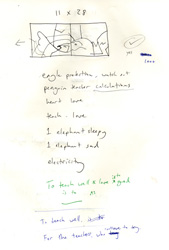 11 x 28
love
eagle protection, watch out
penguin teacher calculations
heart love
teach - love
1 elephant sleepy
1 elephant sad
electricity
To teach well & love
is to
To teach well,
For the teachers, who